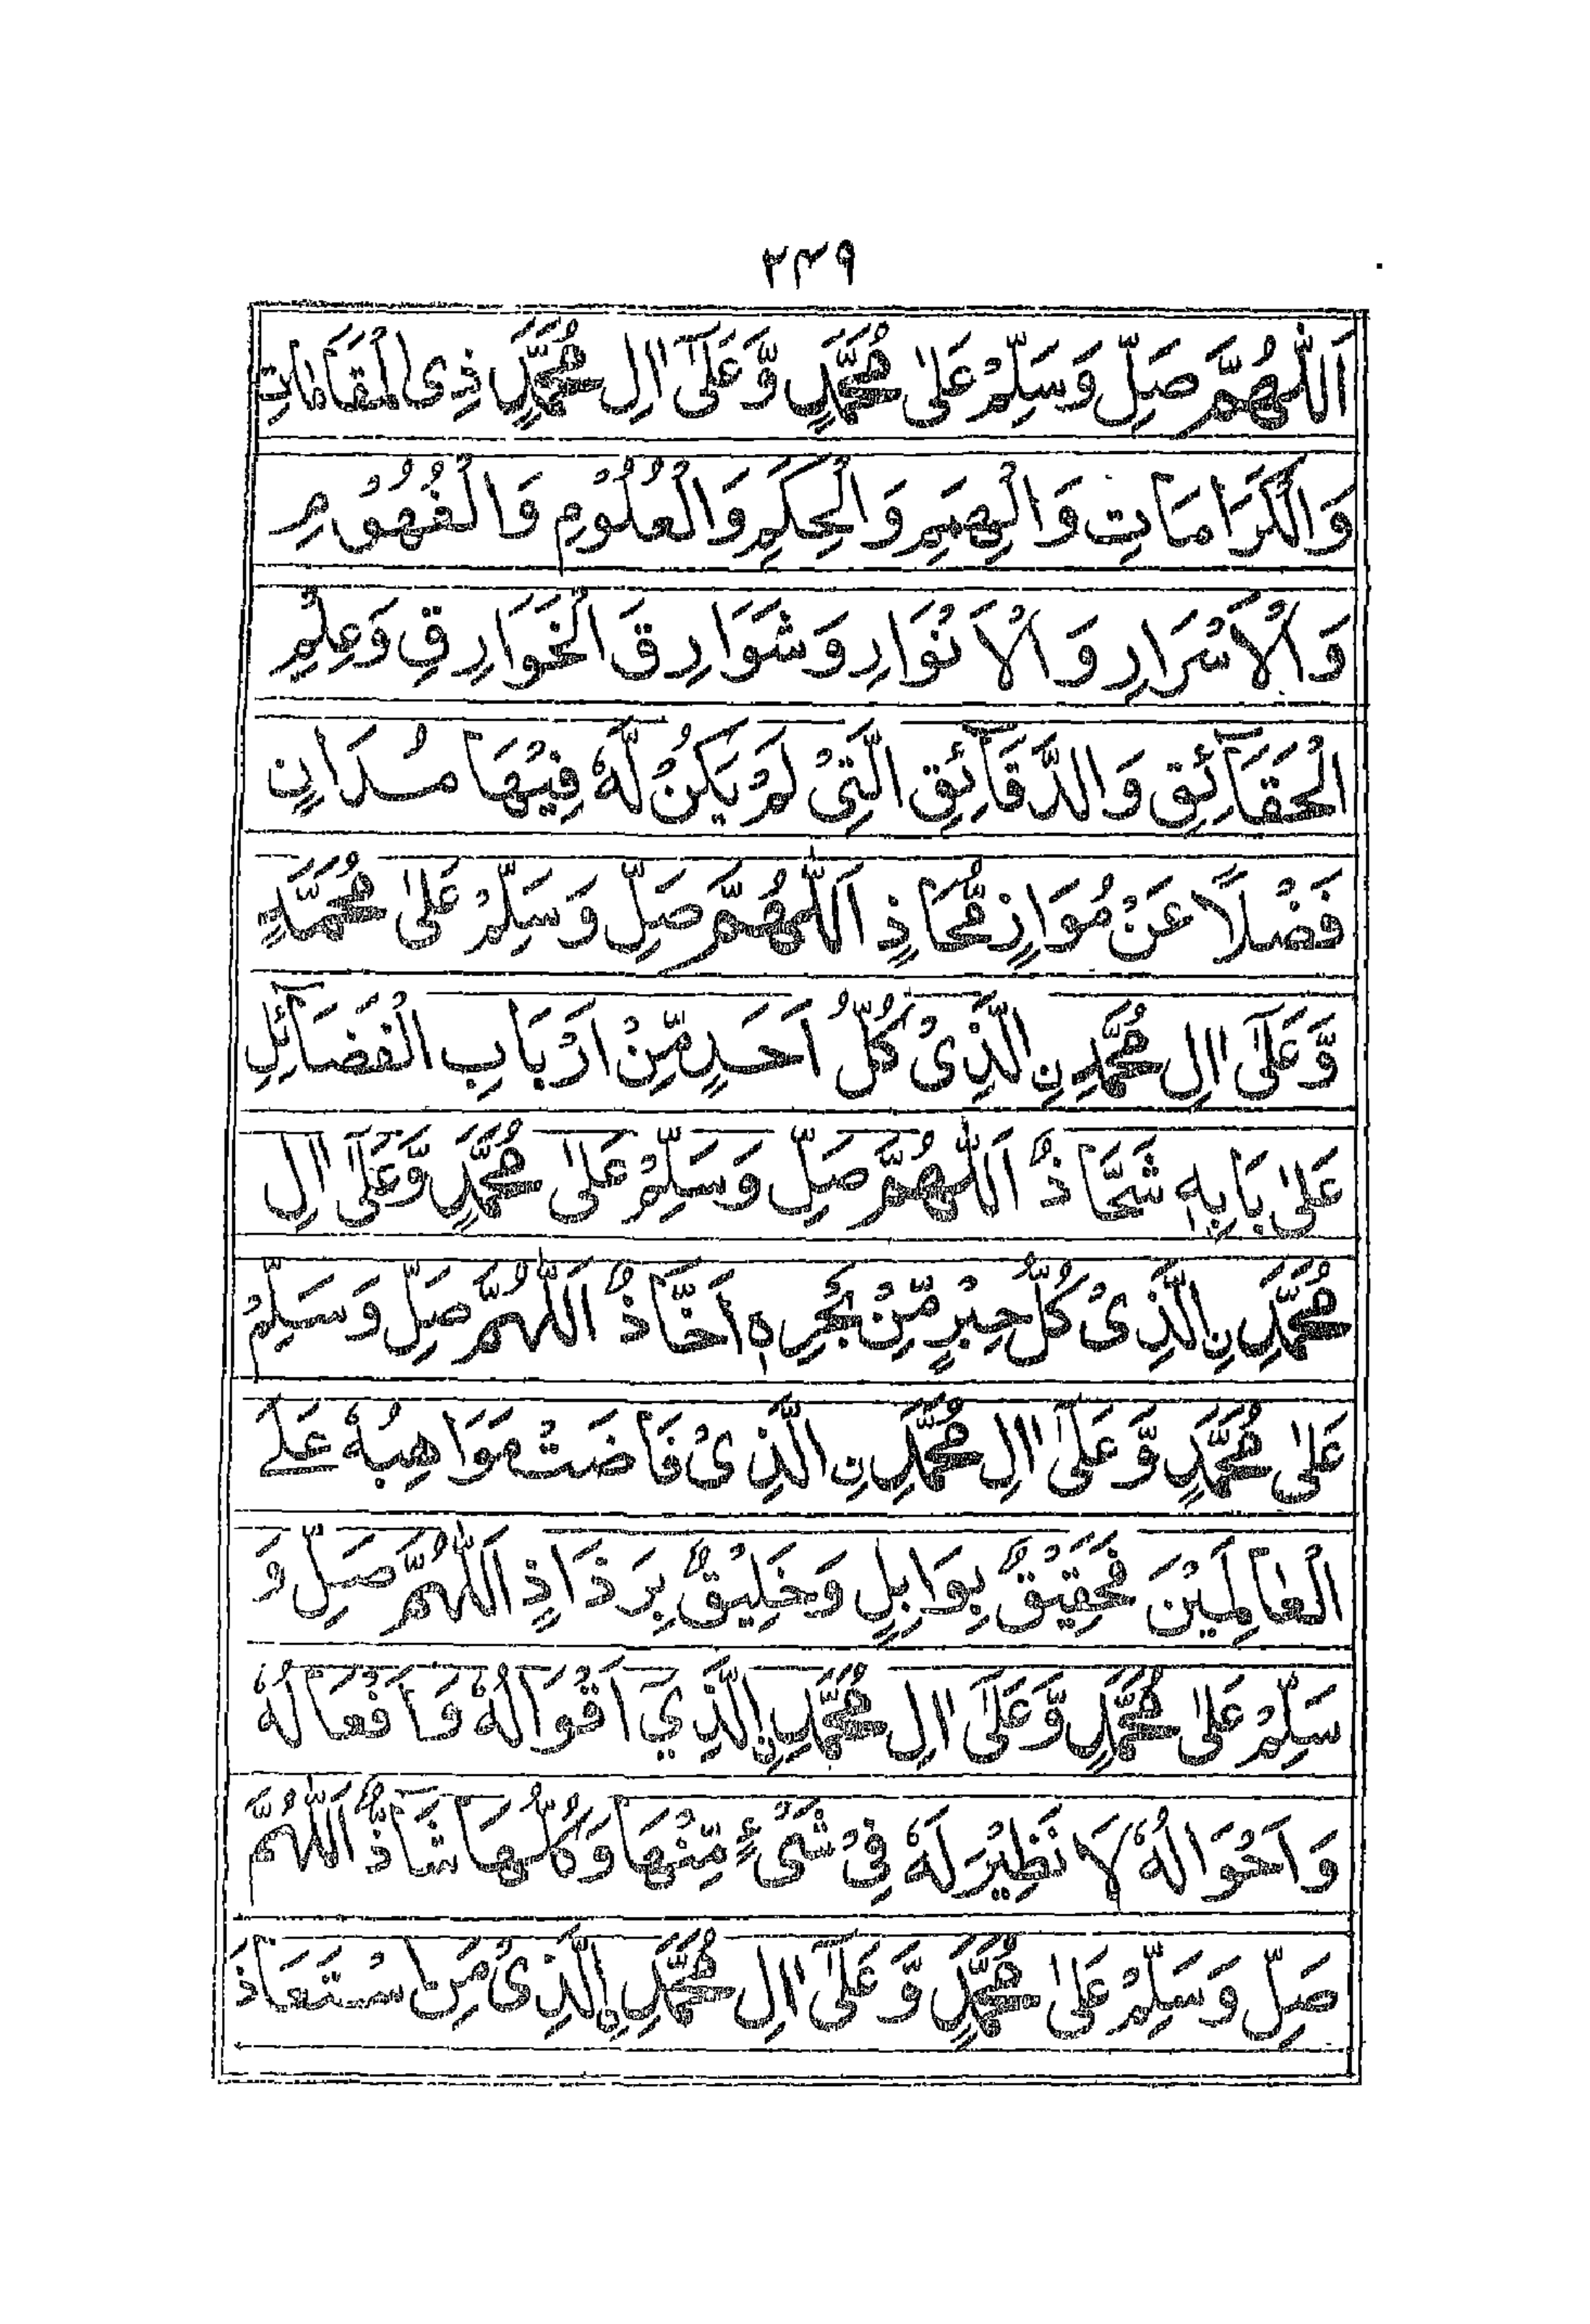 ٢٣٩
اَللّٰهُمَّ صَلِّ وَسَلِّمْ عَلٰى مُحَمَّدٍ وَّعَلٰٓى اٰلِ مُحَمَّدٍ ذِى الْمَقَامَاتِ
وَالْكَرَامَاتِ وَالْهِمَمِ وَالْحِكَمِ وَالْعُلُوْمِ وَالْفُهُوْمِ
وَالْاَسْرَارِ وَالْاَنْوَارِ وَشَوَارِقَ الْخَوَارِقِ وَعِلْمِ
الْحَقَآئِقِ وَالدَّقَآئِقِ الَّتِىْ لَمْ يَكُنْ لَّهٗ فِيْهَا مُدَانٍ
فَضْلًا عَنْ مُوَازٍ مُّحَاذٍ اَللّٰهُمَّ صَلِّ وَسَلِّمْ عَلٰى مُحَمَّدٍ
وَّعَلٰٓى اٰلِ مُحَمَّدِ نِ الَّذِىْ كُلُّ اَحَدٍ مِّنْ اَرْبَابِ الْفَضَآئِلِ
عَلٰى بَابِهٖ شَحَّاذٌ اَللّٰهُمَّ صَلِّ وَسَلِّمْ عَلٰى مُحَمَّدٍ وَّعَلٰٓى اٰلِ
مُحَمَّدِ نِ الَّذِىْ كُلُّ حِبْرٍ مِّنْ بَحْرِهٖ اَخَّاذٌ اَللّٰهُمَّ صَلِّ وَسَلِّمْ
عَلٰى مُحَمَّدٍ وَّعَلٰٓى اٰلِ مُحَمَّدِ نِ الَّذِىْ فَاضَتْ مَوَاهِبُهٗ عَلَى
الْعَالَمِيْنَ فَحَقِيْقٌ بِوَابِلٍ وَخَلِيْقٌ بِرَذَاذٍ اَللّٰهُمَّ صَلِّ وَ
سَلِّمْ عَلٰى مُحَمَّدٍ وَّعَلٰٓى اٰلِ مُحَمَّدِ نِ الَّذِيْ اَقْوَالُهٗ وَاَفْعَالُهٗ
وَاَحْوَالُهٗ لَا نَظِيْرَ لَهٗ فِىْ شَىْءٍ مِّنْهَا وَكُلُّهَا شَآذٌّ اَللّٰهُمَّ
صَلِّ وَسَلِّمْ عَلٰى مُحَمَّدٍ وَّعَلٰٓى اٰلِ مُحَمَّدِ نِ الَّذِىْ مَنِ اسْتَعَاذَ